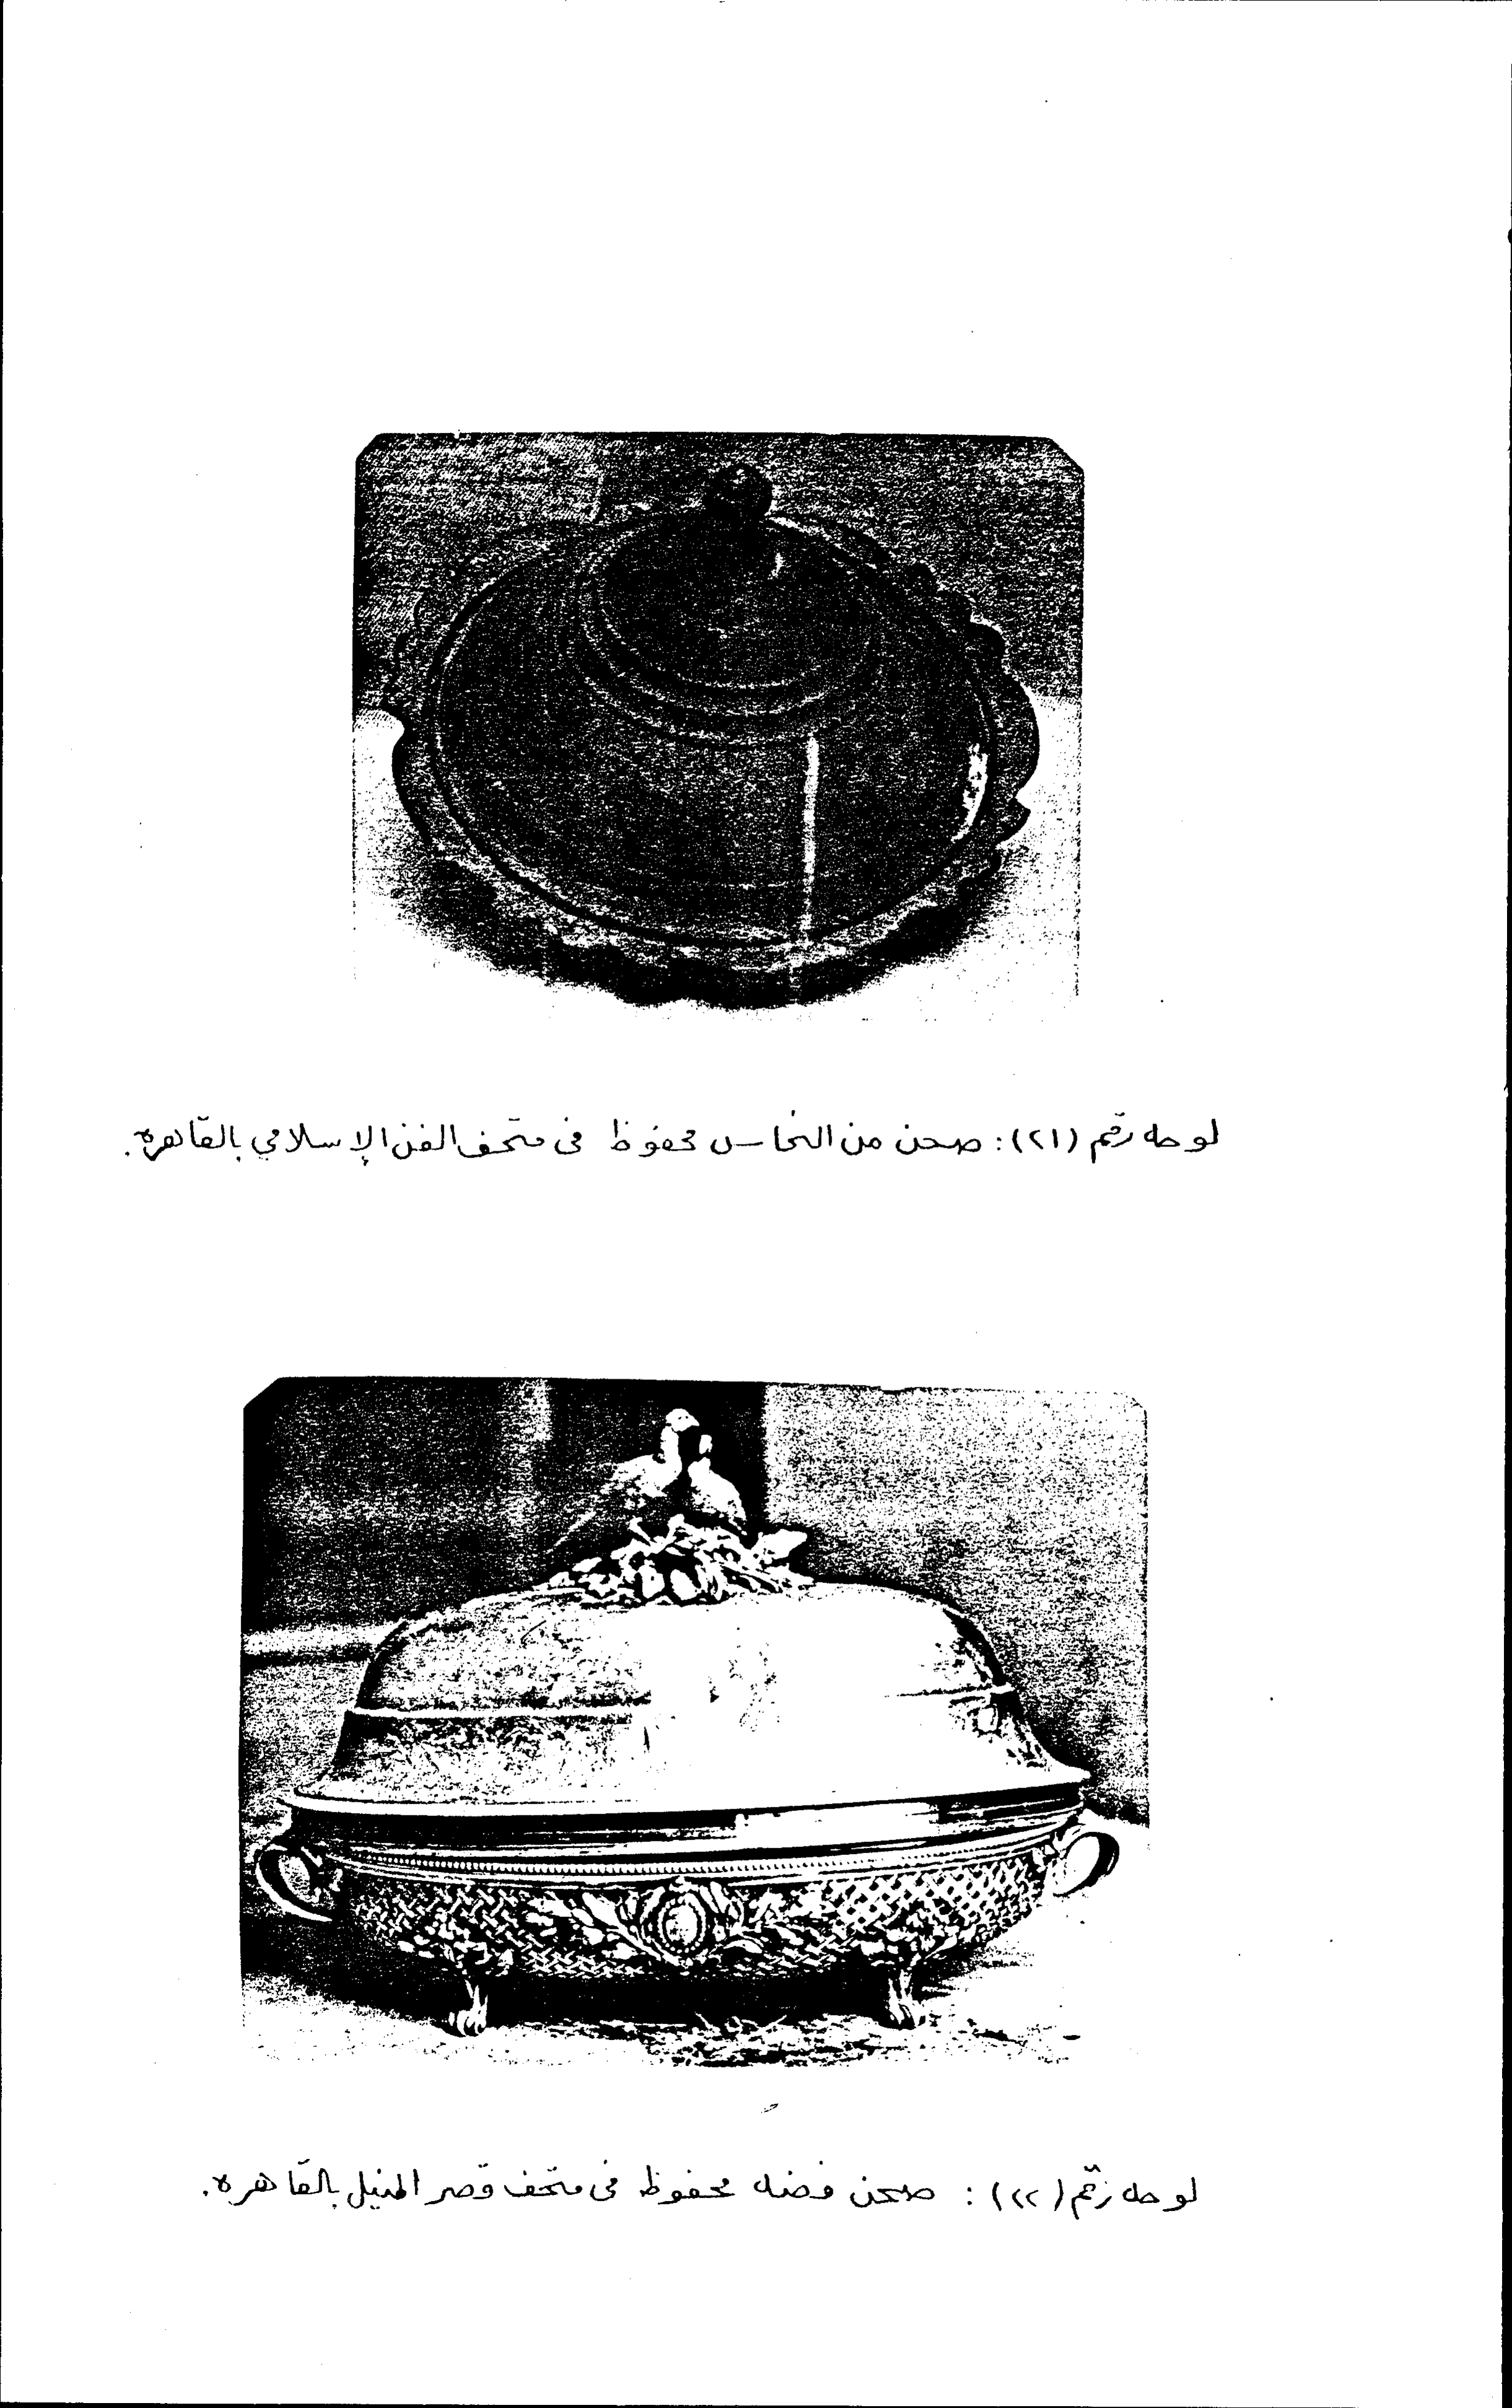 لوحه رقم (٢١): صحن من النحاس محفوظ فى متحف الفن الإسلامي بالقاهره.
لوحه رقم (٢٢): صحن فضه محفوظ فى متحف قصر المنيل بالقاهره.